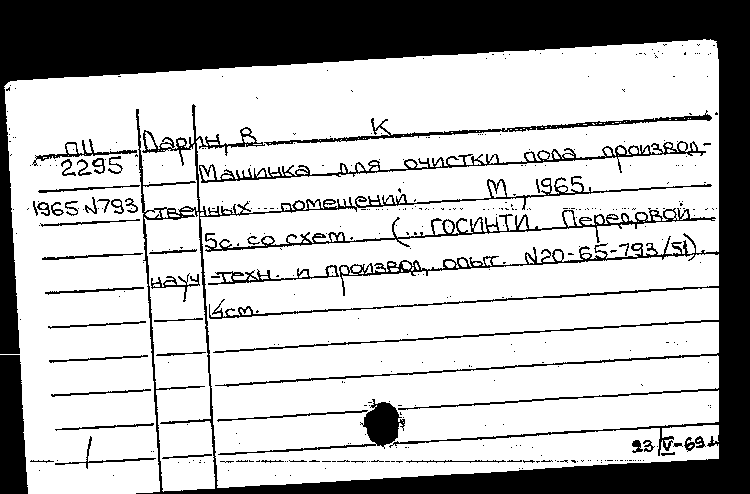 ПЦ Дарин, В К
2295 Машинка для очистки пола производ-
1965 N793 ственных помещений. М, 1965.
5с. со схем. (...ГОСИНТИ. Передовой
науч-техн. и производ. опыт. N20-65-793/51).
4см.
23/V-69